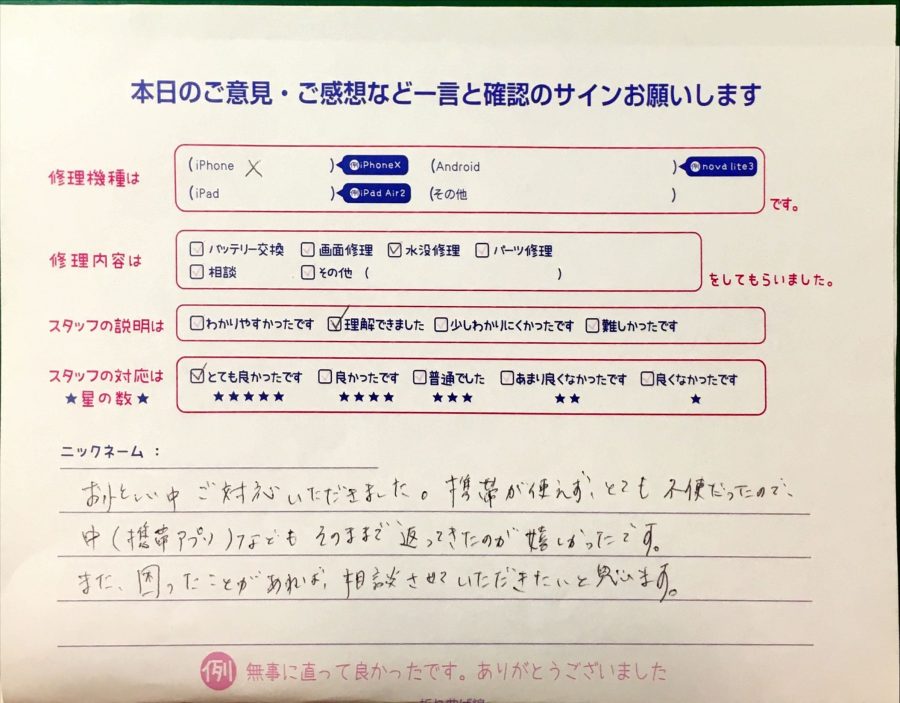 本日のご意見・ご感想など一言と確認のサインお願いします
修理機種は
(iPhone X ) 例iPhoneX (Android ) 例nova lite3
(iPad ) 例iPad Air2 (その他 )
です。
修理内容は
☐バッテリー交換 ☐画面修理 ☑水没修理 ☐パーツ修理
☐相談 ☐その他 ( )
をしてもらいました。
スタッフの説明は
☐わかりやすかったです ☑理解できました ☐少しわかりにくかったです ☐難しかったです
スタッフの対応は
★星の数★
☑とても良かったです ☐良かったです ☐普通でした ☐あまり良くなかったです ☐良くなかったです
★★★★★ ★★★★ ★★★ ★★ ★
ニックネーム：
中ご対応いただきました。携帯が使えず、とても不便だったので、
中(携帯アプリ)などもそのままで返ってきたのが嬉しかったです。
また、困ったことがあれば、相談させていただきたいと思います。
例 無事に直って良かったです。ありがとうございました